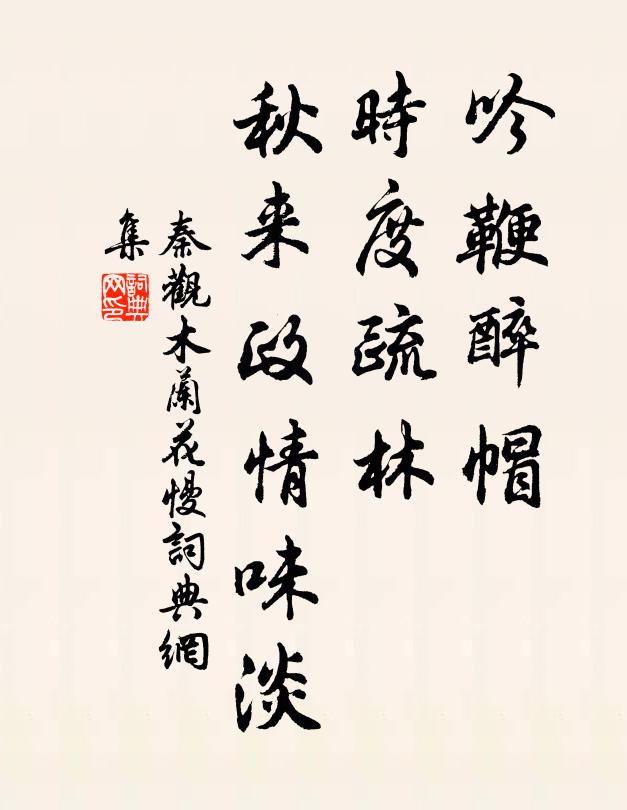 吟鞭醉帽
時度疏林
秋来政情味淡
秦觀木蘭花慢詞典網
集
詞典
网印